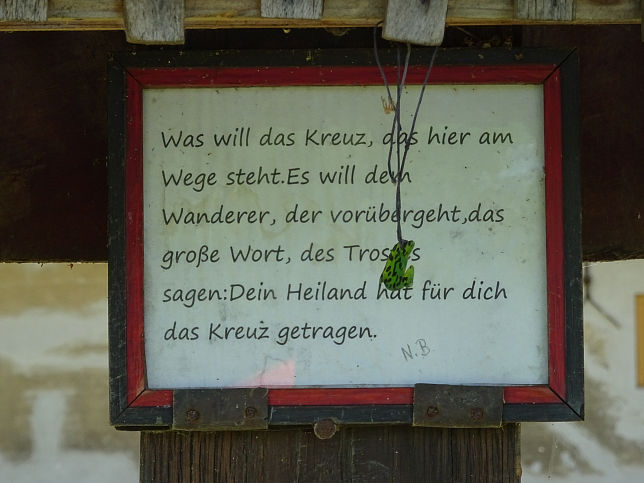 Was will das Kreuz, das hier am
Wege steht.Es will dem
Wanderer, der vorübergeht,das
große Wort, des Trostes
sagen:Dein Heiland hat für dich
das Kreuz getragen.
N.B